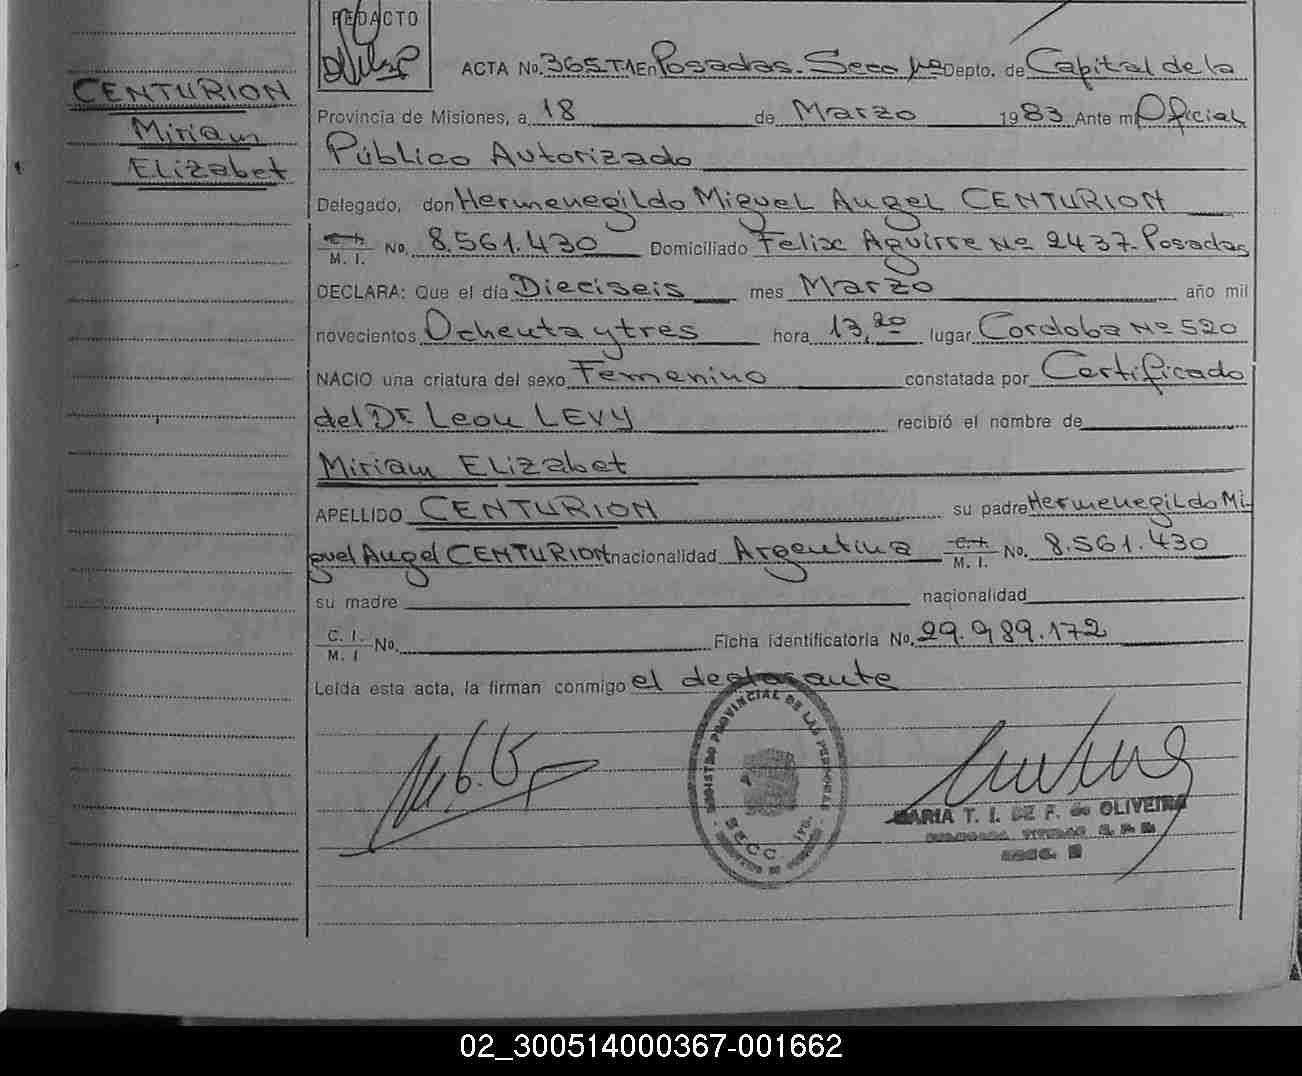 REDACTO
CENTURION
Miriam
Elizabet
ACTA No. 365 T1 En Posadas. Secc 1ra Depto. de Capital de la
Provincia de Misiones, a 18 de Marzo 1983 Ante mi Oficial
Público Autorizado
Delegado, don Hermenegildo Miguel Angel CENTURION
C. I. M. I. No. 8.561.430 Domiciliado Felix Aguirre Nº 2437. Posadas
DECLARA: Que el día Dieciseis mes Marzo año mil
novecientos Ochenta y tres hora 13,20 lugar Cordoba Nº 520
NACIO una criatura del sexo Femenino constatada por Certificado
del Dr. Leon LEVY recibió el nombre de
Miriam Elizabet
APELLIDO CENTURION su padre Hermenegildo Mi-
guel Angel CENTURION nacionalidad Argentina C. I. M. I. No. 8.561.430
su madre nacionalidad
C. I. M. I No. Ficha identificatoria No. 29.989.172
Leída esta acta, la firman conmigo el declarante
REGISTRO PROVINCIAL DE LAS PERSONAS
SECC. 1ra.
MARIA T. I. DE F. de OLIVEIRA
02_300514000367-001662